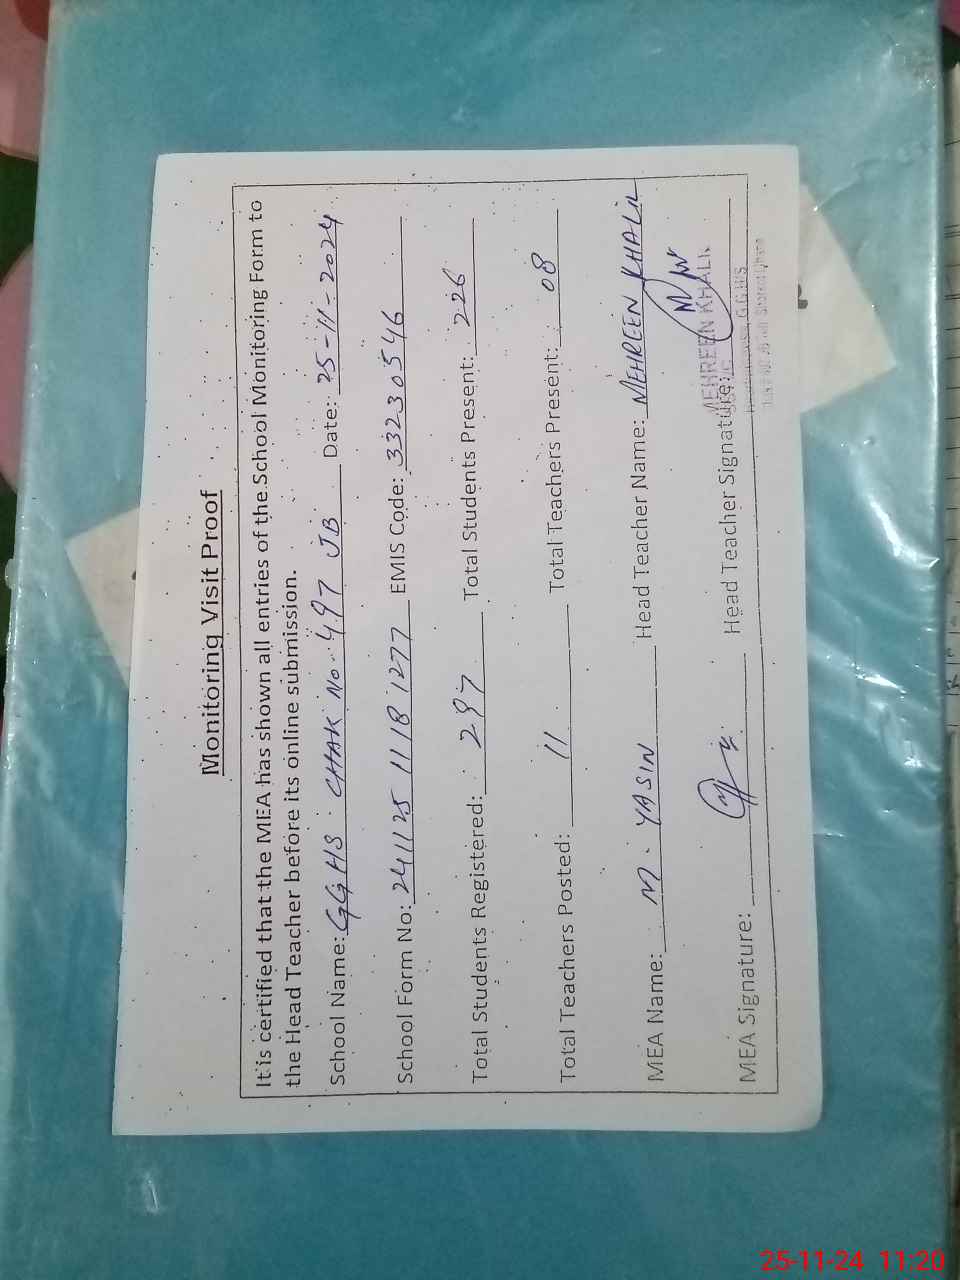 Monitoring Visit Proof
It is certified that the MEA has shown all entries of the School Monitoring Form to
the Head Teacher before its online submission.
School Name: GGHS CHAK No. 497 JB Date: 25-11-2024
School Form No: 241125 1118 1277 EMIS Code: 33230546
Total Students Registered: 297 Total Students Present: 226
Total Teachers Posted: 11 Total Teachers Present: 08
MEA Name: M. YASIN Head Teacher Name: MEHREEN KHALIL
MEA Signature: Head Teacher Signature:
MEHREEN KHALIL
G.G.H/S
25-11-24 11:20